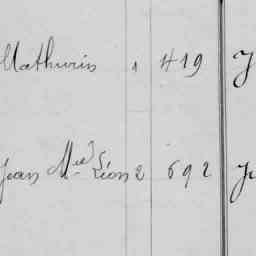 Mathurin 1 419 J
Jean Mie Léon 2 692 Ju